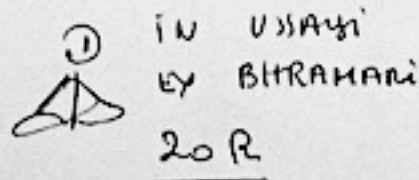 ① IN UJJAYI
EX BHRAMARI
20 R